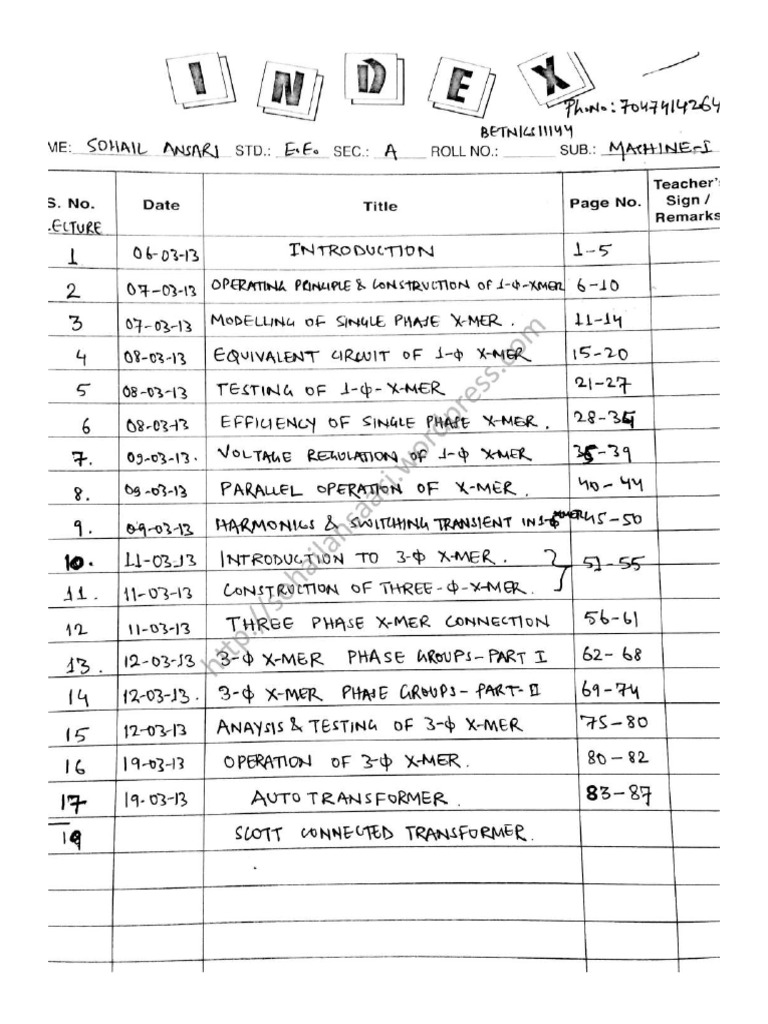 INDEX
Ph.No: 7047914264
BETN1CS11144
ME: SOHAIL ANSARI STD.: E.E. SEC.: A ROLL NO.: SUB.: MACHINE-I
S. No. Date Title Page No. Teacher's Sign / Remarks
LECTURE
1 06-03-13 INTRODUCTION 1-5
2 07-03-13 OPERATING PRINCIPLE & CONSTRUCTION OF 1-Φ-XMER 6-10
3 07-03-13 MODELLING OF SINGLE PHASE X-MER. 11-14
4 08-03-13 EQUIVALENT CIRCUIT OF 1-Φ X-MER 15-20
5 08-03-13 TESTING OF 1-Φ-X-MER 21-27
6 08-03-13 EFFICIENCY OF SINGLE PHASE X-MER. 28-34
7. 09-03-13. VOLTAGE REGULATION OF 1-Φ X-MER 35-39
8. 09-03-13 PARALLEL OPERATION OF X-MER. 40-44
9. 09-03-13 HARMONICS & SWITCHING TRANSIENT IN 1-Φ XMER 45-50
10. 11-03-13 INTRODUCTION TO 3-Φ X-MER. 51-55
11. 11-03-13 CONSTRUCTION OF THREE-Φ-X-MER.
12 11-03-13 THREE PHASE X-MER CONNECTION 56-61
13. 12-03-13 3-Φ X-MER PHASE GROUPS-PART I 62-68
14 12-03-13. 3-Φ X-MER PHASE GROUPS-PART-II 69-74
15 12-03-13 ANAYSIS & TESTING OF 3-Φ X-MER 75-80
16 19-03-13 OPERATION OF 3-Φ X-MER. 80-82
17 19-03-13 AUTO TRANSFORMER. 83-87
SCOTT CONNECTED TRANSFORMER.
http://sohailansaari.wordpress.com